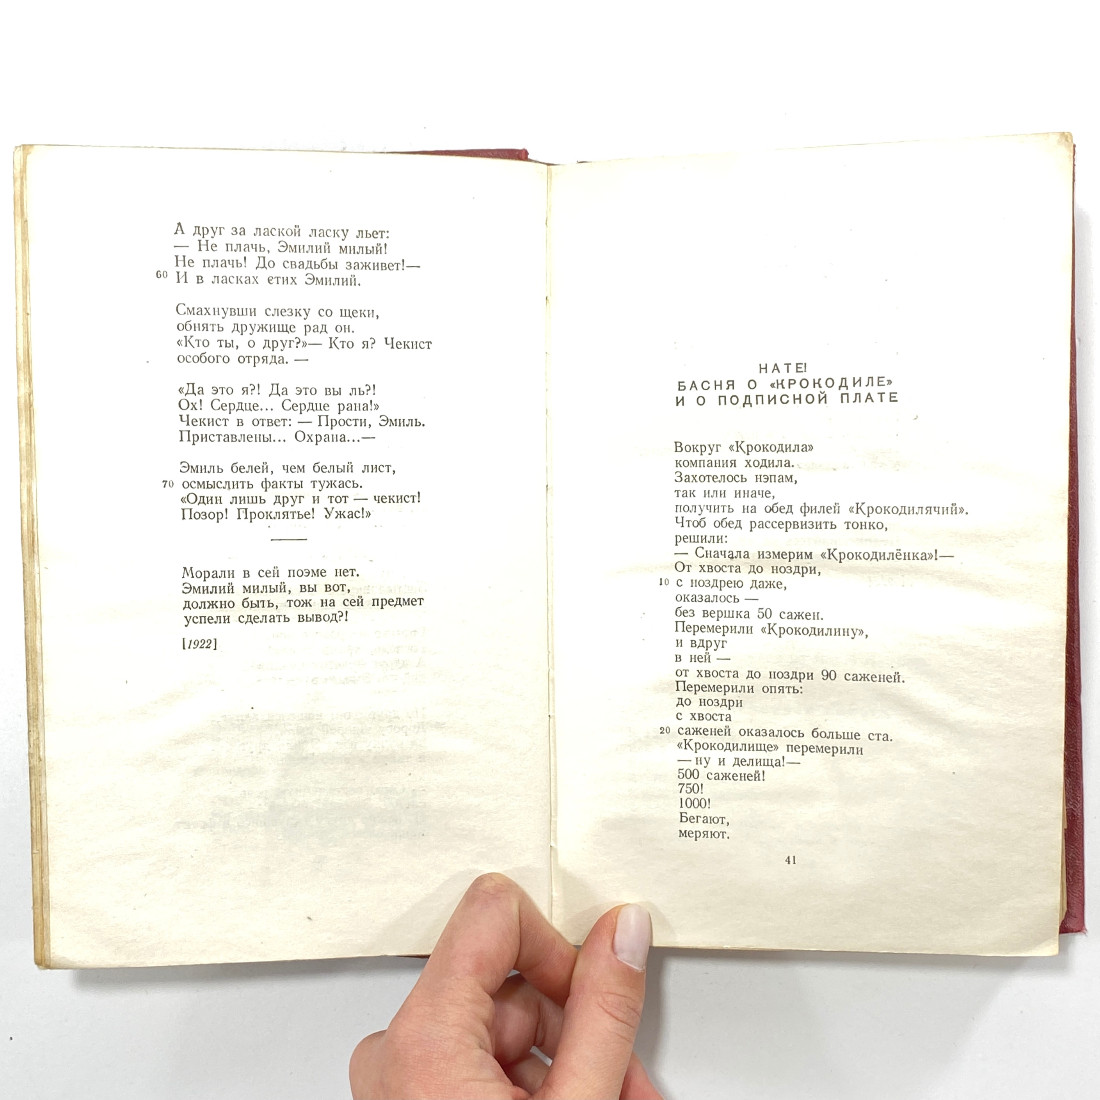 А друг за лаской ласку льет:
— Не плачь, Эмилий милый!
Не плачь! До свадьбы заживет!—
60 И в ласках етих Эмилий.
Смахнувши слезку со щеки,
обнять дружище рад он.
«Кто ты, о друг?»— Кто я? Чекист
особого отряда. —
«Да это я?! Да это вы ль?!
Ох! Сердце... Сердце рана!»
Чекист в ответ: — Прости, Эмиль.
Приставлены... Охрана...—
Эмиль белей, чем белый лист,
70 осмыслить факты тужась.
«Один лишь друг и тот — чекист!
Позор! Проклятье! Ужас!»
Морали в сей поэме нет.
Эмилий милый, вы вот,
должно быть, тож на сей предмет
успели сделать вывод?!
[1922]
НАТЕ!
БАСНЯ О «КРОКОДИЛЕ»
И О ПОДПИСНОЙ ПЛАТЕ
Вокруг «Крокодила»
компания ходила.
Захотелось нэпам,
так или иначе,
получить на обед филей «Крокодилячий».
Чтоб обед рассервизить тонко,
решили:
— Сначала измерим «Крокодилёнка»!—
От хвоста до ноздри,
10 с ноздрею даже,
оказалось —
без вершка 50 сажен.
Перемерили «Крокодилину»,
и вдруг
в ней —
от хвоста до ноздри 90 саженей.
Перемерили опять:
до ноздри
с хвоста
20 саженей оказалось больше ста.
«Крокодилище» перемерили
— ну и делища!—
500 саженей!
750!
1000!
Бегают,
меряют.
41